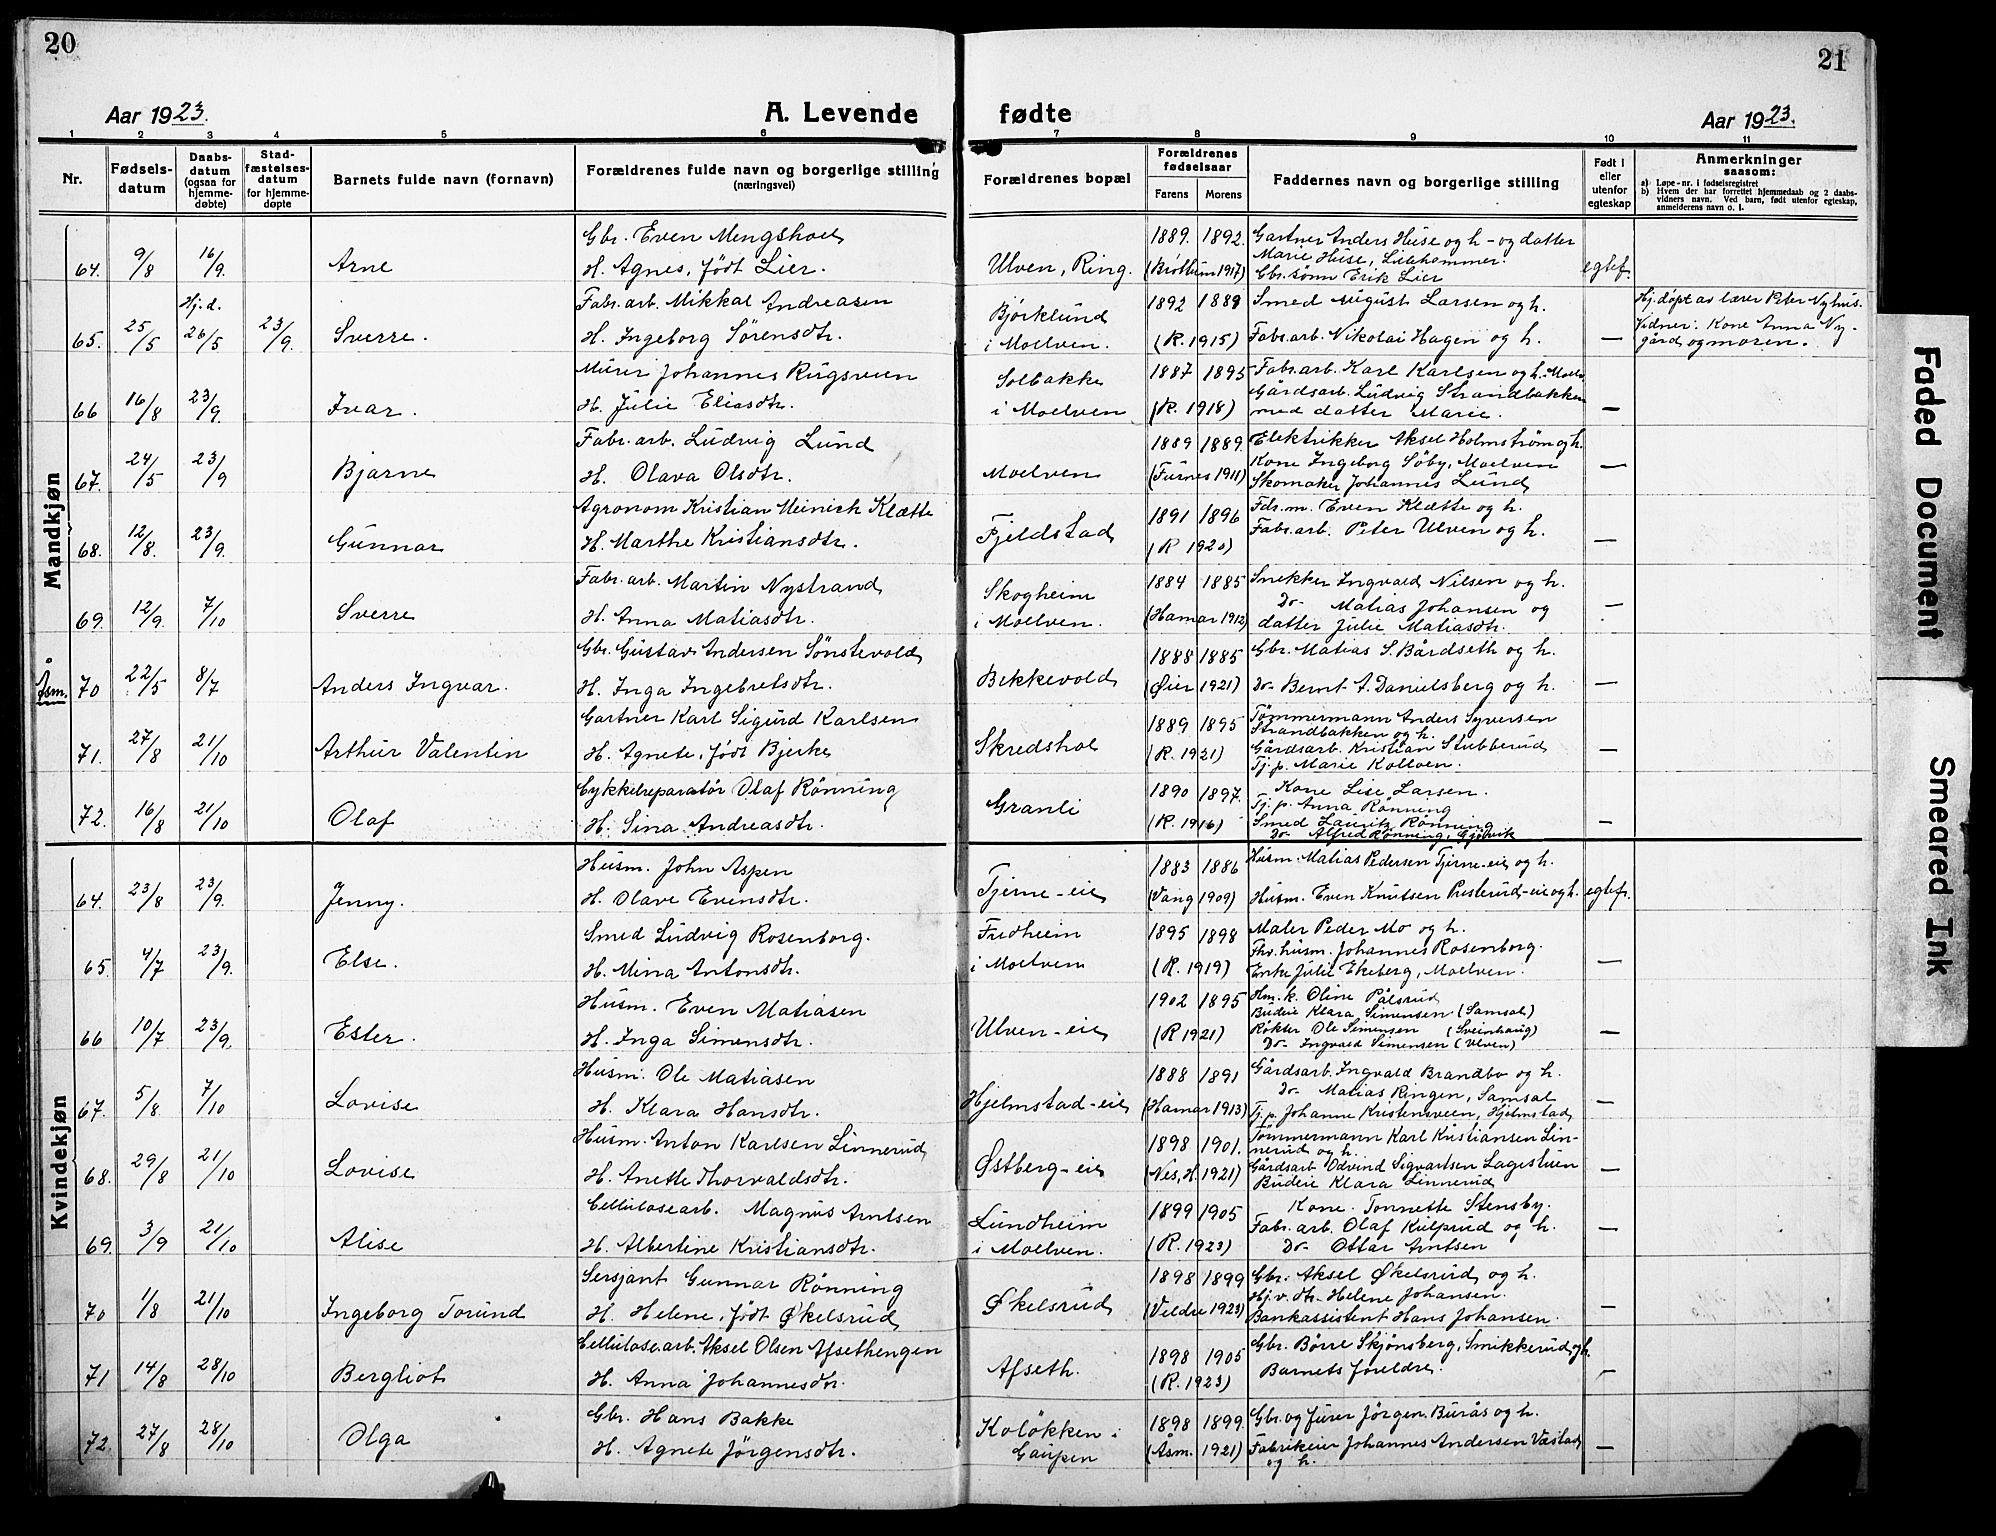 20
Aar 1923.
A. Levende
1 2 3 4 5 6
Nr.
Fødsels-
datum
Daabs-
datum
(ogsaa for
hjemme-
døbte)
Stad-
fæstelses-
datum
for hjemme-
døpte
Barnets fulde navn (fornavn)
Forældrenes fulde navn og borgerlige stilling
(næringsvei)
Mandkjøn
64. 9/8 16/9. Arne
Gbr. Even Mengshoel
H. Agnes, født Lier.
65. 25/5 Hj.d. 26/5 23/9. Sverre.
Fabr.arb. Mikkal Andreasen
H. Ingeborg Sørensdtr.
66 16/8 23/9. Ivar.
Murer Johannes Rugsveen
H. Julie Eliasdtr.
67. 24/5 23/9 Bjarne
Fabr.arb. Ludvig Lund
H. Olava Olsdtr.
68. 12/8. 23/9. Gunnar
Agronom Kristian Meinich Klætte
H. Marthe Kristiansdtr.
69. 12/9. 7/10 Sverre
Fabr.arb. Martin Nystrand
H. Anna Matiasdtr.
Åsm. 70 22/5 8/7 Anders Ingvar.
Gbr. Gustav Andersen Sønstevold
H. Inga Ingebretsdtr.
71. 27/8 21/10 Arthur Valentin
Gartner Karl Sigurd Karlsen
H. Agnete, født Bjerke
72. 16/8 21/10 Olaf
Cykkelreparatør Olaf Rønning
H. Sina Andreasdtr.
Kvindekjøn
64. 23/8 23/9. Jenny.
Husm. John Aspen
H. Olave Evensdtr.
65. 4/7 23/9. Else.
Smed Ludvig Rosenborg.
H. Mina Antonsdtr.
66 10/7 23/9. Ester.
Husm. Even Matiasen
H. Inga Simensdtr.
67. 5/8 7/10 Lovise
Husm. Ole Matiasen
H. Klara Hansdtr.
68. 29/8 21/10 Lovise
Husm. Anton Karlsen Linnerud
H. Anette Thorvaldsdtr.
69. 3/9 21/10 Alise
Cellulosearb. Magnus Arntsen
H. Albertine Kristiansdtr.
70 1/8 21/10 Ingeborg Torund
Sersjant Gunnar Rønning
H. Helene, født Økelsrud
71 14/8 28/10 Bergliot
Cellulosearb. Aksel Olsen Afsethengen
H. Anna Johannesdtr.
72. 27/8 28/10 Olga
Gbr. Hans Bakke
H. Agnete Jørgensdtr.
21
fødte
Aar 1923.
7 8 9 10 11
Forældrenes bopæl
Forældrenes
fødselsaar
Farens Morens
Faddernes navn og borgerlige stilling
Født i
eller
utenfor
egteskap
Anmerkninger
saasom:
a) Løpe-nr. i fødselsregistret
b) Hvem der har forrettet hjemmedaab og 2 daabs-
vidners navn. Ved barn, født utenfor egteskap,
anmelderens navn o. l.
Ulven, Ring. 1889. 1892. (Brøttum 1917)
Gartner Anders Huse og h - og datter
Marie Huse, Lillehammer.
Gbr.sønn Erik Lier
egtef.
Bjørklund
i Moelven. 1892 1889 (R. 1915)
Smed August Larsen og h.
Fabr.arb. Nikolai Hagen og h. —
Hj.døpt av lærer Peter Nyhus.
Vidner: Kone Anna Ny-
gård og moren.
Solbakke
i Moelven 1887 1895 (R. 1918)
Fabr.arb. Karl Karlsen og h. Moelv
Gårdsarb. Ludvig Strandbakken
med datter Marie. —
Moelven 1889 1889. (Furnes 1911)
Elektrikker Aksel Holmstrøm og h.
Kone Ingeborg Søby, Moelven
Skomaker Johannes Lund —
Fjeldstad 1891 1896 (R 1920)
Fdr.m. Even Klætte og h.
Fabr.arb. Peter Ulven og h. —
Skogheim
i Moelven. 1884 1885 (Hamar 1912)
Snekker Ingvald Nilsen og h.
Do- Matias Johansen og
datter Julie Matiasdtr. —
Bekkevold 1888 1885 (Øier 1921)
Gbr. Matias S. Bårdseth og h.
Do- Bernt A. Danielsberg og h. —
Skredshol 1889 1895 (R. 1921)
Tømmermann Anders Syversen
Strandbakken og h.
Gårdsarb. Kristian Stubberud
Tj.p. Marie Kollven. —
Granli 1890 1897. (R. 1916)
Kone Lise Larsen.
Tj.p. Anna Rønning
Smed Lauritz Rønning
Do- Alfred Rønning, Gjøvik —
Tjerne-eie 1883 1886 (Vang 1909)
Husm. Matias Pedersen Tjerne-eie og h.
Husm. Even Knutsen Presterud-eie og h. egtef.
Fredheim
i Moelven 1895 1898 (R. 1919)
Maler Peder Mo og h.
Fhv. husm. Johannes Rosenborg.
Enke Julie Ekeberg, Moelven. —
Ulven-eie 1902 1895 (R 1921)
Hm. k. Oline Pålsrud
Budeie Klara Simensen (Samsal)
Røkter Ole Simensen (Sveinhaug)
Do- Ingvald Simensen (Ulven) —
Hjelmstad-eie 1888 1891 (Hamar 1913)
Gårdsarb. Ingvald Brandbo og h.
Do- Matias Ringen, Samsal
Tj.p. Johanne Kristensveen, Hjelmstad —
Østberg-eie 1898 1901. (Nes, H. 1921)
Tømmermann Karl Kristiansen Lin-
nerud og h.
Gårdsarb. Odvind Sigvartsen Lagestuen
Budeie Klara Linnerud —
Lundheim
i Moelven. 1899 1905 (R. 1923)
Kone Tonnette Stensby.
Fabr.arb. Olaf Kulprud og h.
Do- Ottar Arntsen —
Økelsrud 1898 1899 (Veldre 1923)
Gbr. Aksel Økelsrud og h.
Hj.v. dtr. Helene Johansen.
Bankassistent Hans Johansen. —
Afseth. 1898 1905 (R. 1923)
Gbr. Børre Skjønsberg, Smikkerud og h.
Barnets foreldre. —
Koløkken i
Gaupen 1898 1899. (Åsm. 1921)
Gbr. og furer Jørgen Burås og h.
Fabrikeier Johannes Andersen Væstad
og h. —
Faded Document
Smeared Ink